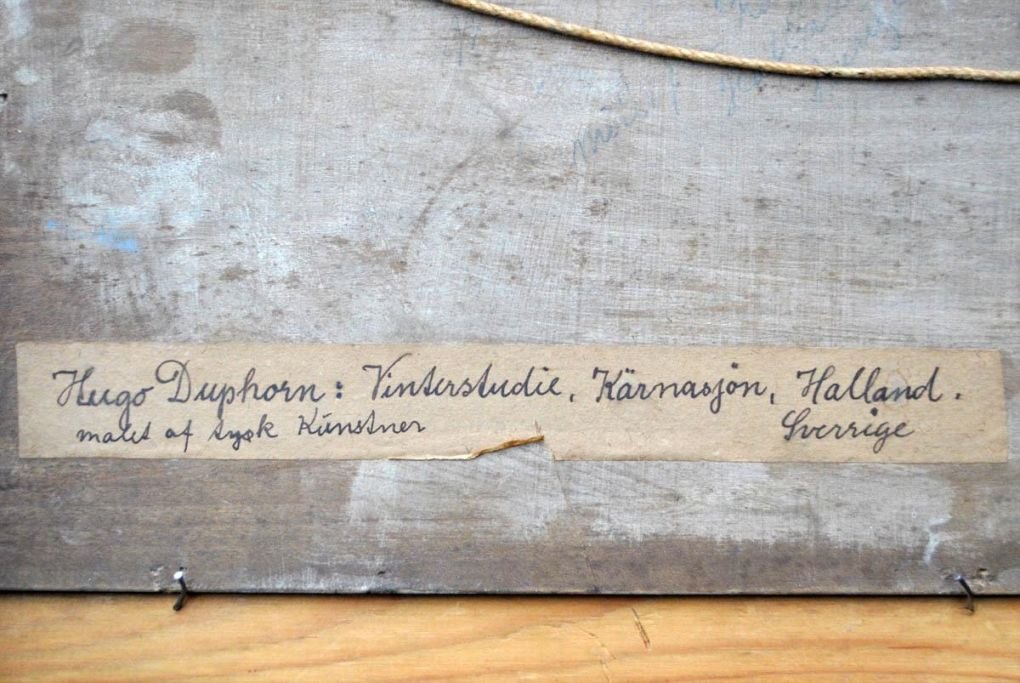 Hugo Duphorn: Vinterstudie, Kärnasjön, Halland.
malet af tysk Künstner Sverrige